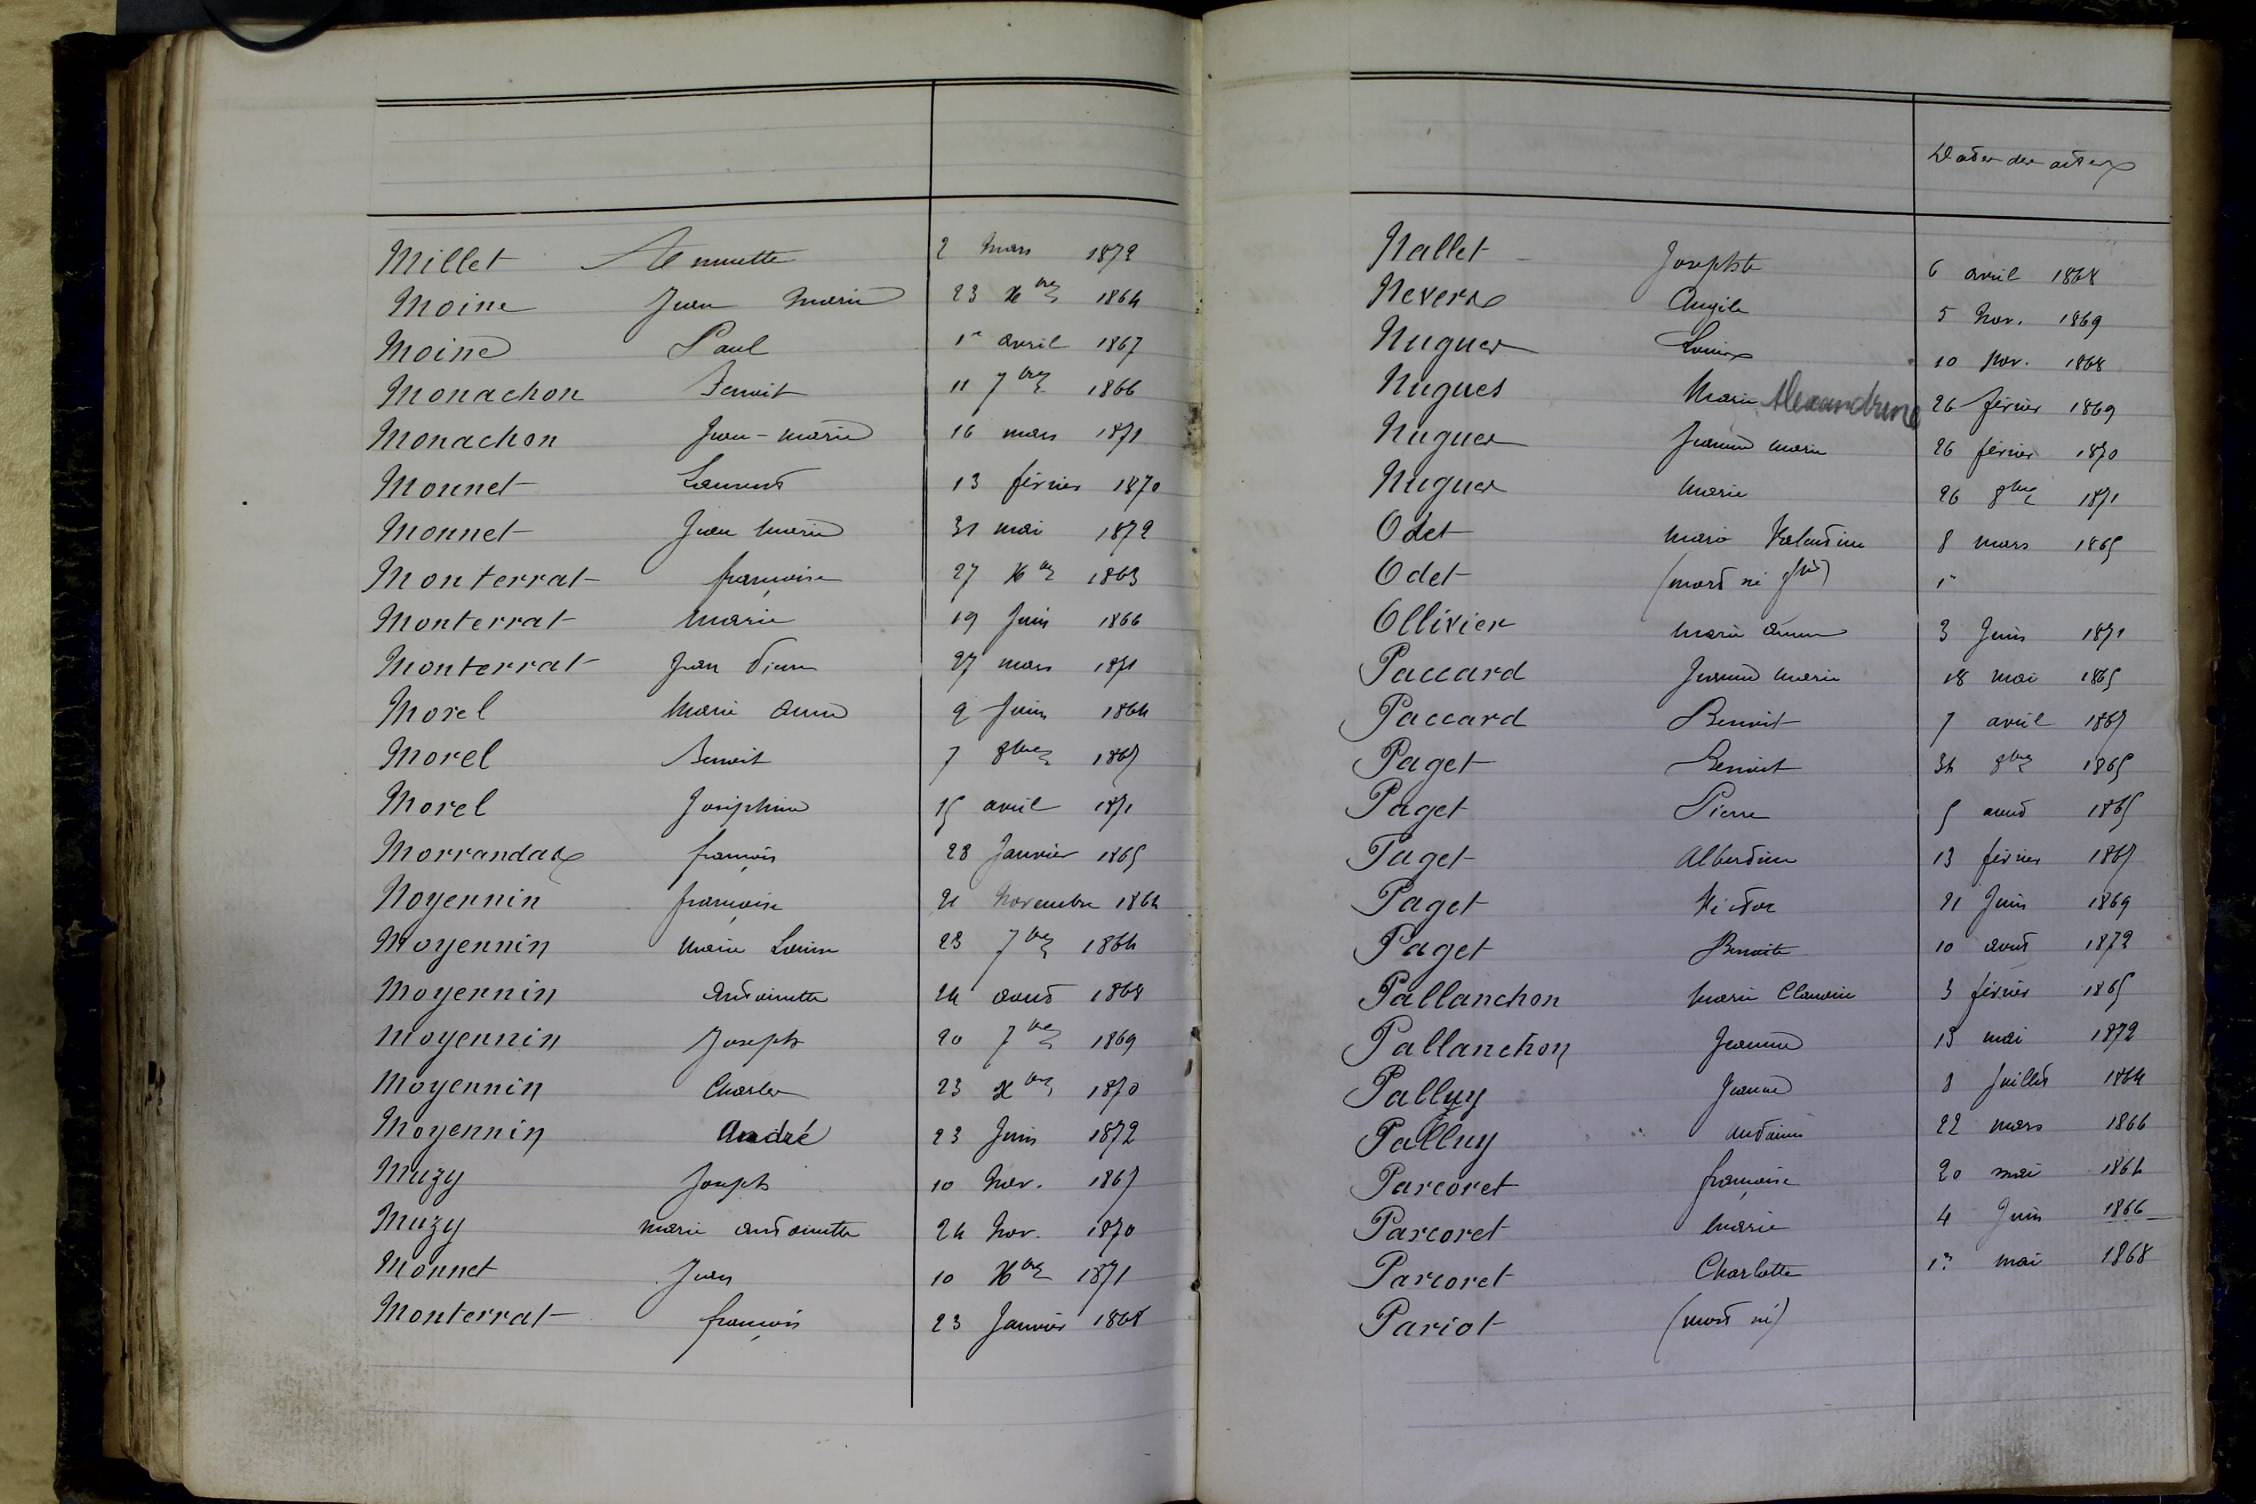 Millet Annette 2 mars 1872
Moine Jean Marie 23 Xbre 1864
Moine Paul 1er avril 1867
Monachon Benoit 11 7bre 1866
Monachon Jean-marie 16 mars 1871
Monnet Laurent 13 février 1870
Monnet Jean Marie 31 mai 1872
Monterrat françoise 27 Xbre 1863
Monterrat Marie 19 Juin 1866
Monterrat Jean Pierre 27 mars 1871
Morel Marie Anne 9 Juin 1864
Morel Benoit 7 8bre 1867
Morel Joséphine 15 avril 1871
Morrandas françois 28 Janvier 1865
Moyennin françoise 21 Novembre 1862
Moyennin Marie Louise 23 7bre 1864
Moyennin Antoinette 24 aout 1868
Moyennin Joseph 20 7bre 1869
Moyennin Charles 23 Xbre 1870
Moyennin André 23 Juin 1872
Muzy Joseph 10 Nov. 1867
Muzy Marie Antoinette 24 Nov. 1870
Monnet Jean 10 Xbre 1871
Monterrat françois 23 Janvier 1868
Dates des actes
Nallet Josephte 6 avril 1868
Nevers Angèle 5 Nov. 1869
Nugues Louis 10 Nov. 1868
Nugues Marie Alexandrine 26 février 1869
Nugues Jeanne Marie 26 février 1870
Nugues Marie 26 8bre 1871
Odet Marie Valentine 8 mars 1865
Odet (mort né) 1er
Ollivier Marie Anne 3 Juin 1871
Paccard Jeanne Marie 18 mai 1865
Paccard Benoit 7 avril 1867
Paget Benoit 8bre 1865
Paget Pierre 5 aout 1865
Paget Albertine 13 février 1867
Paget Victor 21 Juin 1869
Paget Benoite 10 aout 1872
Pallanchon Marie Claudine 3 février 1865
Pallanchon Jeanne 13 mai 1872
Palluy Jeanne 8 Juillet 1864
Palluy Antoine 22 mars 1866
Parcoret françoise 20 mai 1864
Parcoret Marie 4 Juin 1866
Parcoret Charlotte 1er mai 1868
Pariot (mort né)